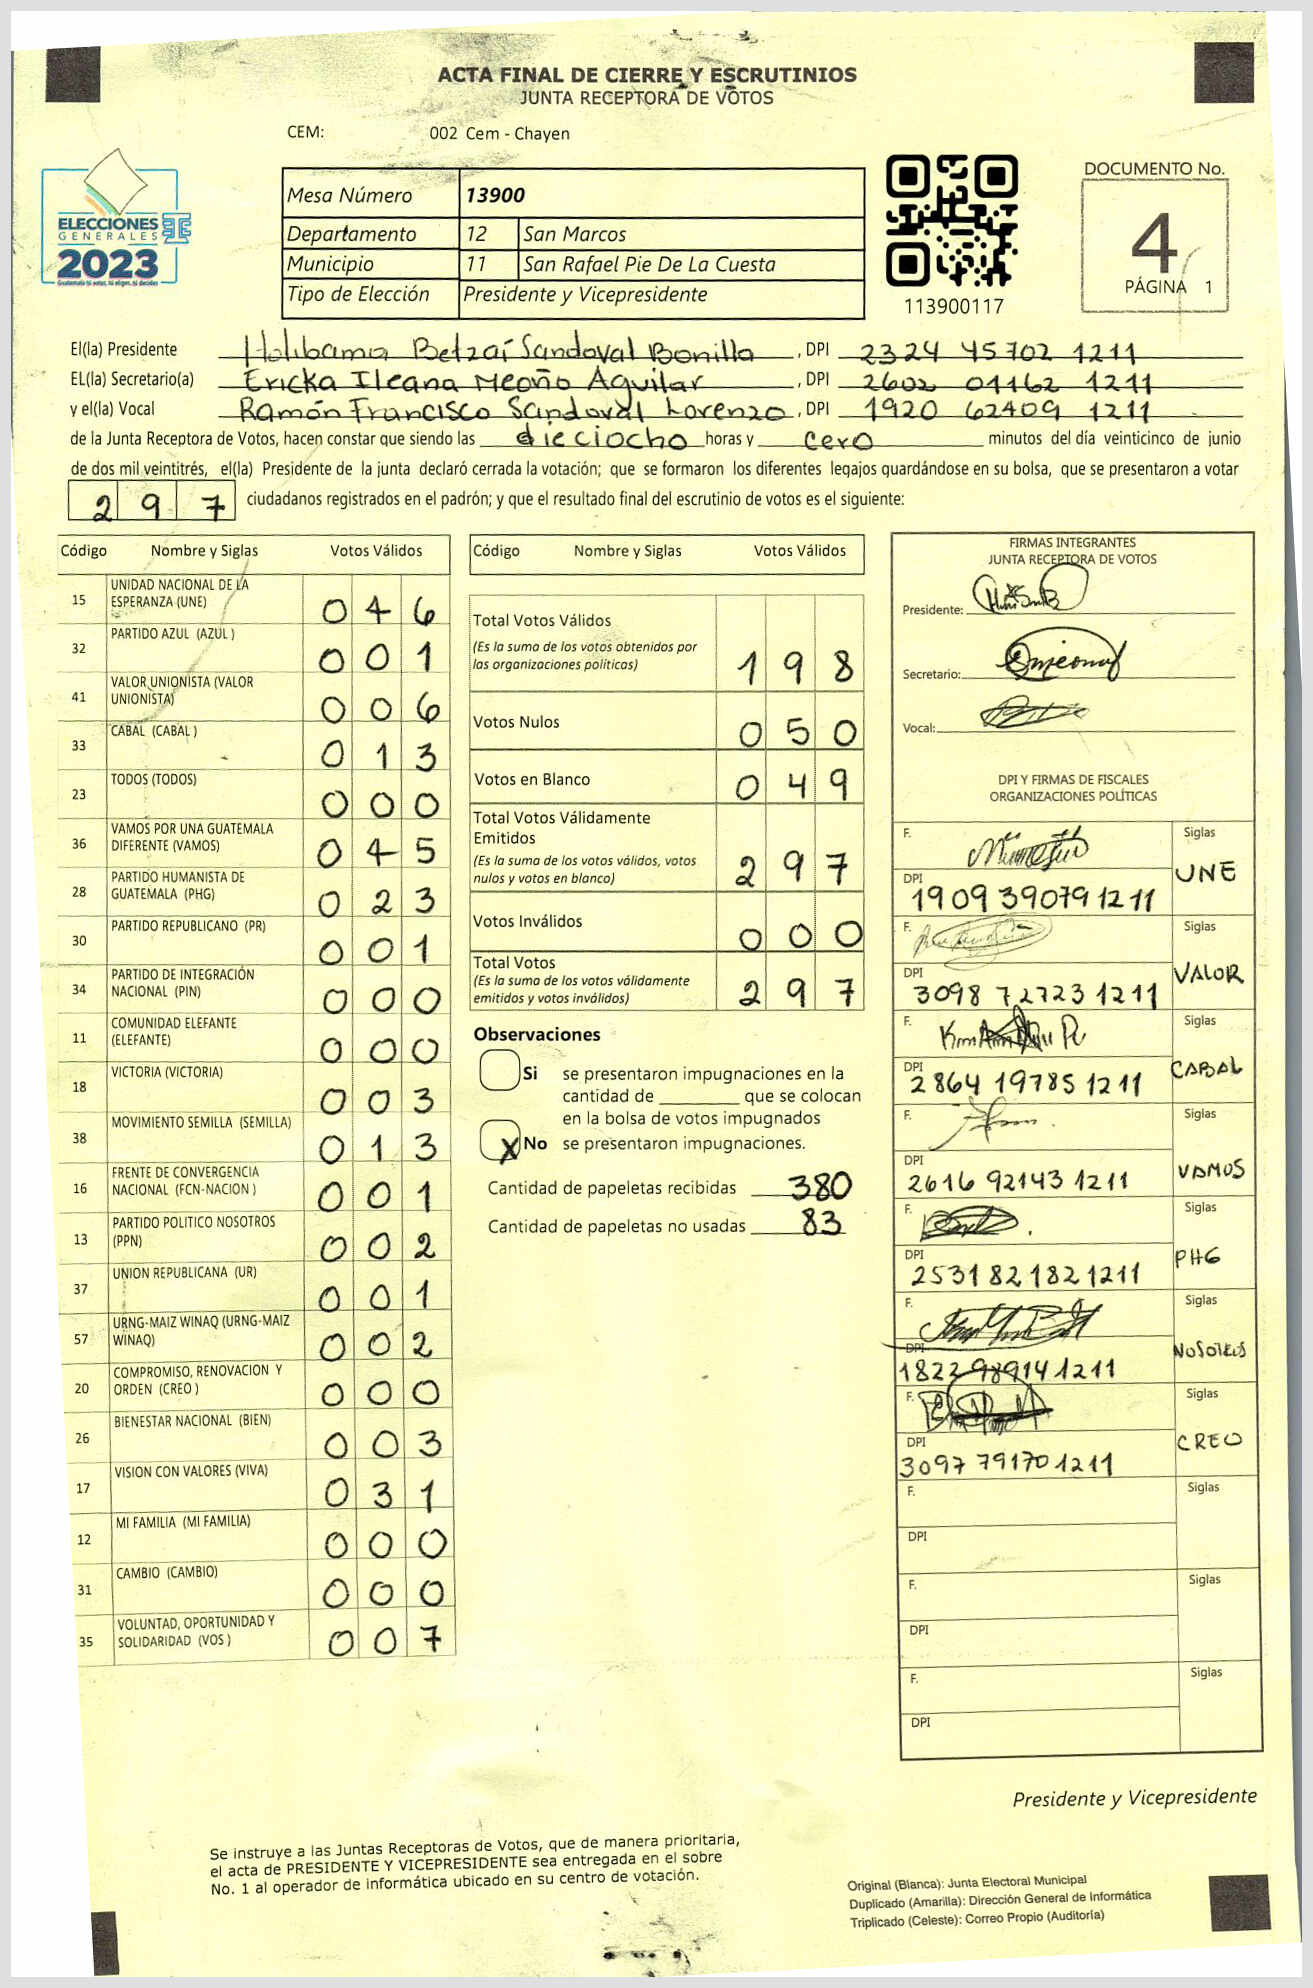 ACTA FINAL DE CIERRE Y ESCRUTINIOS
JUNTA RECEPTORA DE VOTOS
CEM: 002 Cem - Chayen
ELECCIONES
GENERALES
2023
Guatemala tú votas, tú eliges, tú decides
Mesa Número 13900
Departamento 12 San Marcos
Municipio 11 San Rafael Pie De La Cuesta
Tipo de Elección Presidente y Vicepresidente
113900117
DOCUMENTO No.
4
PÁGINA 1
El(la) Presidente Holibama Betzaí Sandoval Bonilla, DPI 2324 45702 1211
EL(la) Secretario(a) Ericka Ileana Meoño Aguilar, DPI 2602 01162 1211
y el(la) Vocal Ramón Francisco Sandoval Lorenzo, DPI 1920 62409 1211
de la Junta Receptora de Votos, hacen constar que siendo las dieciocho horas y cero minutos del día veinticinco de junio
de dos mil veintitrés, el(la) Presidente de la junta declaró cerrada la votación; que se formaron los diferentes legajos guardándose en su bolsa, que se presentaron a votar
297 ciudadanos registrados en el padrón; y que el resultado final del escrutinio de votos es el siguiente:
Código Nombre y Siglas Votos Válidos
15 UNIDAD NACIONAL DE LA
ESPERANZA (UNE) 046
32 PARTIDO AZUL (AZUL ) 001
41 VALOR UNIONISTA (VALOR
UNIONISTA) 006
33 CABAL (CABAL ) 013
23 TODOS (TODOS) 000
36 VAMOS POR UNA GUATEMALA
DIFERENTE (VAMOS) 045
28 PARTIDO HUMANISTA DE
GUATEMALA (PHG) 023
30 PARTIDO REPUBLICANO (PR) 001
34 PARTIDO DE INTEGRACIÓN
NACIONAL (PIN) 000
11 COMUNIDAD ELEFANTE
(ELEFANTE) 000
18 VICTORIA (VICTORIA) 003
38 MOVIMIENTO SEMILLA (SEMILLA) 013
16 FRENTE DE CONVERGENCIA
NACIONAL (FCN-NACION ) 001
13 PARTIDO POLITICO NOSOTROS
(PPN) 002
37 UNION REPUBLICANA (UR) 001
57 URNG-MAIZ WINAQ (URNG-MAIZ
WINAQ) 002
20 COMPROMISO, RENOVACION Y
ORDEN (CREO ) 000
26 BIENESTAR NACIONAL (BIEN) 003
17 VISION CON VALORES (VIVA) 031
12 MI FAMILIA (MI FAMILIA) 000
31 CAMBIO (CAMBIO) 000
35 VOLUNTAD, OPORTUNIDAD Y
SOLIDARIDAD (VOS ) 007
Código Nombre y Siglas Votos Válidos
Total Votos Válidos
(Es la suma de los votos obtenidos por
las organizaciones políticas) 198
Votos Nulos 050
Votos en Blanco 049
Total Votos Válidamente
Emitidos
(Es la suma de los votos válidos, votos
nulos y votos en blanco) 297
Votos Inválidos 000
Total Votos
(Es la suma de los votos válidamente
emitidos y votos inválidos) 297
Observaciones
Si se presentaron impugnaciones en la
cantidad de ________ que se colocan
en la bolsa de votos impugnados
X No se presentaron impugnaciones.
Cantidad de papeletas recibidas 380
Cantidad de papeletas no usadas 83
FIRMAS INTEGRANTES
JUNTA RECEPTORA DE VOTOS
Presidente:
Secretario:
Vocal:
DPI Y FIRMAS DE FISCALES
ORGANIZACIONES POLÍTICAS
F. Siglas
UNE
DPI
1909 39079 1211
F. Siglas
VALOR
DPI
3098 72723 1211
F. Siglas
CABAL
DPI
2864 19785 1211
F. Siglas
VAMOS
DPI
2616 92143 1211
F. Siglas
PHG
DPI
2531 82182 1211
F. Siglas
NOSOTROS
DPI
1822 98914 1211
F. Siglas
CREO
DPI
3097 79170 1211
F. Siglas
DPI
F. Siglas
DPI
F. Siglas
DPI
Presidente y Vicepresidente
Se instruye a las Juntas Receptoras de Votos, que de manera prioritaria,
el acta de PRESIDENTE Y VICEPRESIDENTE sea entregada en el sobre
No. 1 al operador de informática ubicado en su centro de votación.
Original (Blanca): Junta Electoral Municipal
Duplicado (Amarilla): Dirección General de Informática
Triplicado (Celeste): Correo Propio (Auditoría)